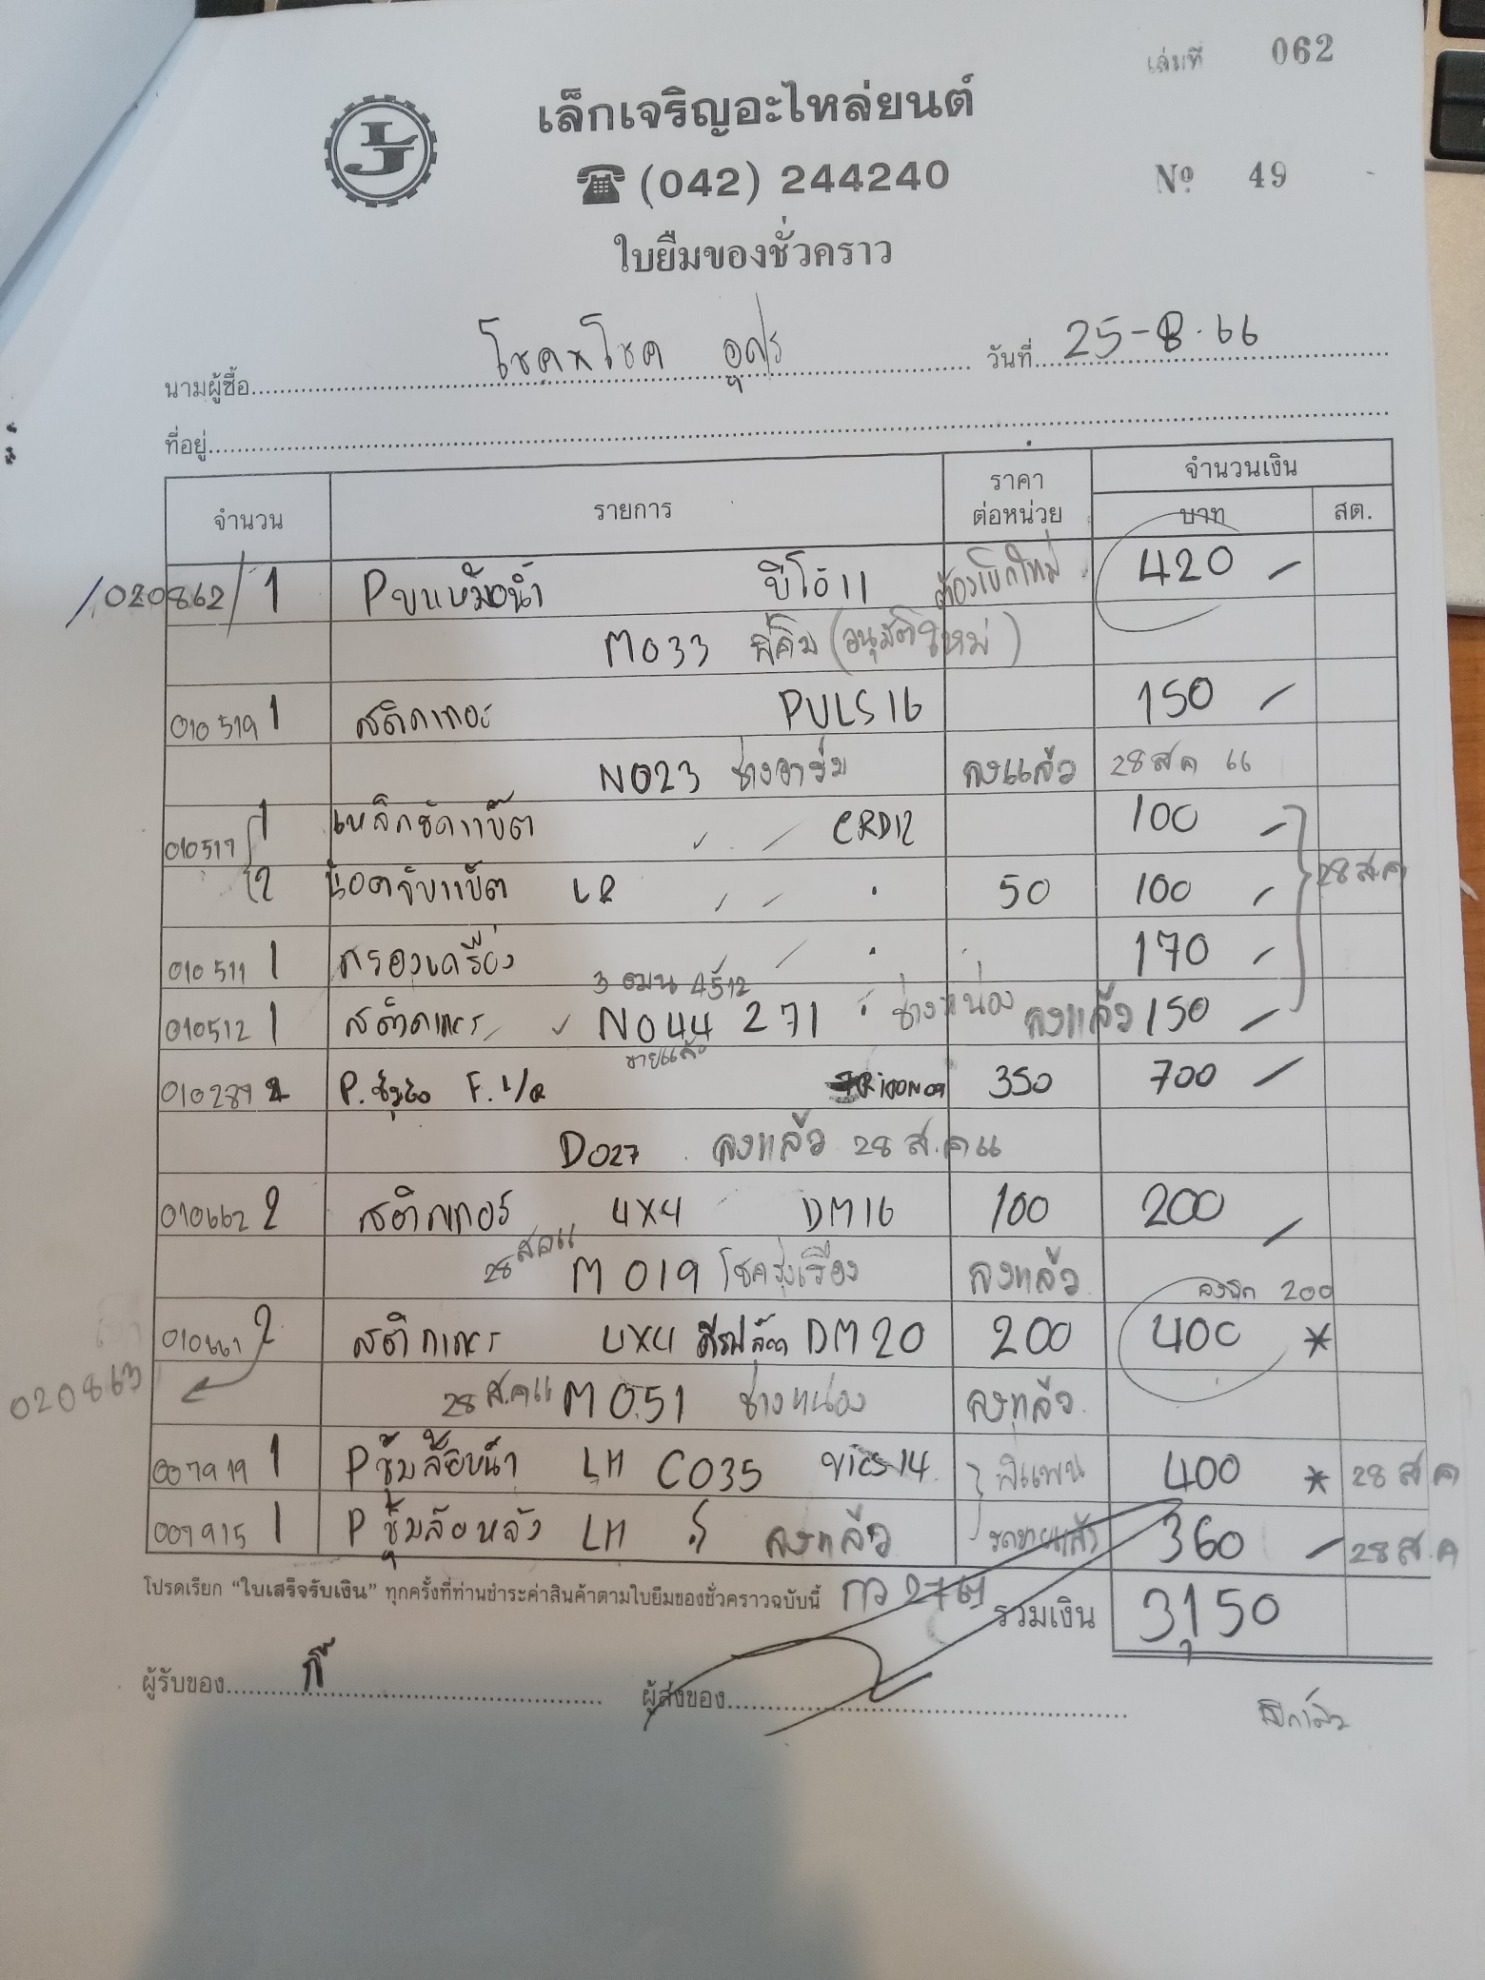 เล่มที่ 062
เล็กเจริญอะไหล่ยนต์
(042) 244240
Nº 49
ใบยืมของชั่วคราว
นามผู้ซื้อ โชคหโชค อุดร วันที่ 25-8-66
ที่อยู่
จำนวน รายการ ราคาต่อหน่วย จำนวนเงิน
บาท สต.
020862 / 1 Pขาหม้อน้ำ วีโอ้11 ต้องเบิกใหม่ 420
M033 พี่คิม (อนุมัติใหม่)
010519 1 สติกเกอร์ PULS16 150
N023 ลงแล้ว 28 สค 66
010517 1 เหล็กรัดแบ็ต CRD12 100
2 น็อตจับแบ็ต LR 50 100 28 ส.ค
010511 1 กรองเครื่อง 170
3 ฒน 4512
010512 1 สติกเกอร์ N044 271 ช่างหน่อง ลงแล้ว 150
ขายแล้ว
010289 2 P. F. L/R TRITON09 350 700
D027 ลงแล้ว 28 ส.ค 66
010662 2 สติกเกอร์ 4X4 DM16 100 200
28 สค 66 M019 โชครุ่งเรือง ลงแล้ว
200
010661 2 สติกเกอร์ 4X4 DM20 200 400 *
020863 28 ส.ค 66 M051 ช่างหน่อง ลงแล้ว
007919 1 P ซุ้มล้อหน้า LH C035 VIOS14 พี่แพน 400 * 28 ส ค
007915 1 P ซุ้มล้อหลัง LH ลงแล้ว รถขายแล้ว 360 28 ส.ค
โปรดเรียก "ใบเสร็จรับเงิน" ทุกครั้งที่ท่านชำระค่าสินค้าตามใบยืมของชั่วคราวฉบับนี้ กว 2761 รวมเงิน 3,150
ผู้รับของ กี้ ผู้ส่งของ